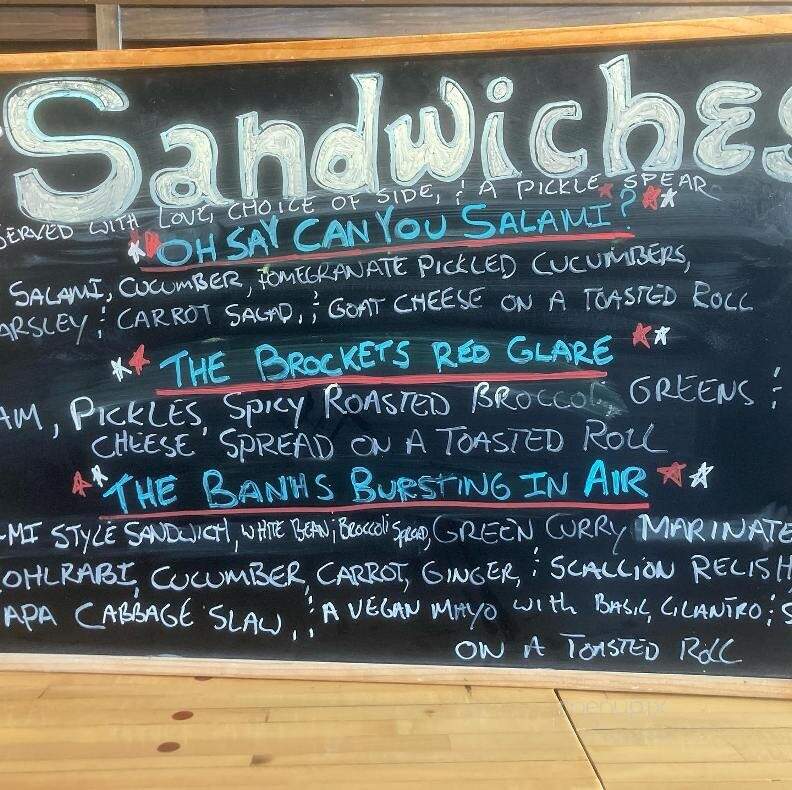 Sandwiches
SERVED WITH LOVE, CHOICE OF SIDE, & A PICKLE SPEAR
OH SAY CAN YOU SALAMI?
SALAMI, CUCUMBER, POMEGRANATE PICKLED CUCUMBERS,
ARSLEY & CARROT SALAD, & GOAT CHEESE ON A TOASTED ROLL
THE BROCKETS RED GLARE
AM, PICKLES, SPICY ROASTED BROCCOLI GREENS &
CHEESE SPREAD ON A TOASTED ROLL
THE BANHS BURSTING IN AIR
-MI STYLE SANDWICH, WHITE BEAN & BROCCOLI SPREAD, GREEN CURRY MARINATE
OHLRABI, CUCUMBER, CARROT, GINGER, & SCALLION RELISH,
APA CABBAGE SLAW, & A VEGAN MAYO WITH BASIL, CILANTRO & S
ON A TOASTED ROLL